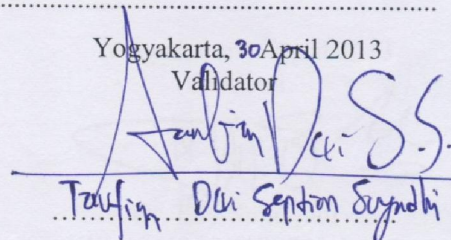 Yogyakarta, 30 April 2013
Validator
Dwi S.S.
Taufiq Dwi Septian Suyadhi